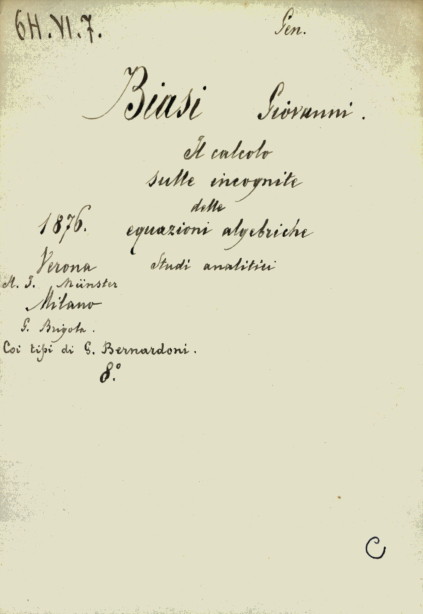 6H.VI.7.
Gen.
Biasi Giovanni.
Il calcolo
sulle incognite
delle
1876. equazioni algebriche
Verona Studi analitici
H. F. Münster
Milano
G. Brigola.
Coi tipi di G. Bernardoni.
8.º
C